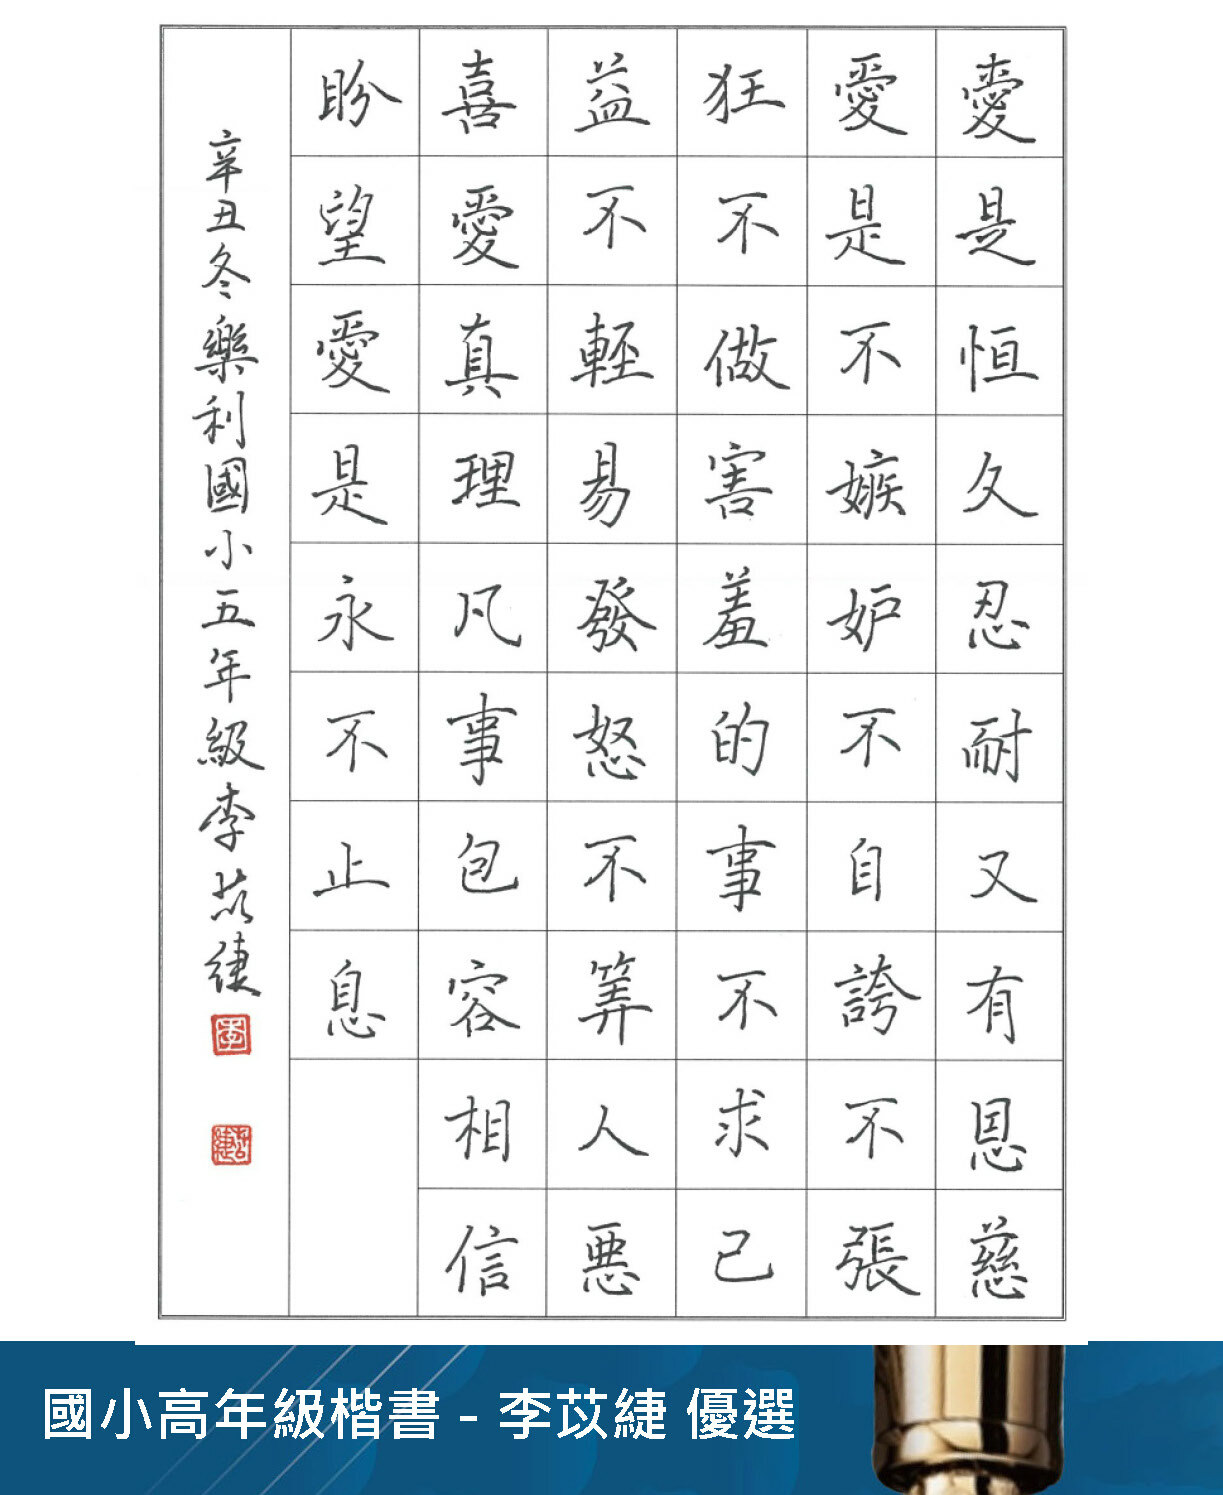 愛是恒久忍耐又有恩慈
愛是不嫉妒不自誇不張
狂不做害羞的事不求己
益不輕易發怒不筭人惡
喜愛真理凡事包容相信
盼望愛是永不止息
辛丑冬樂利國小五年級李苡緁
國小高年級楷書 - 李苡緁 優選